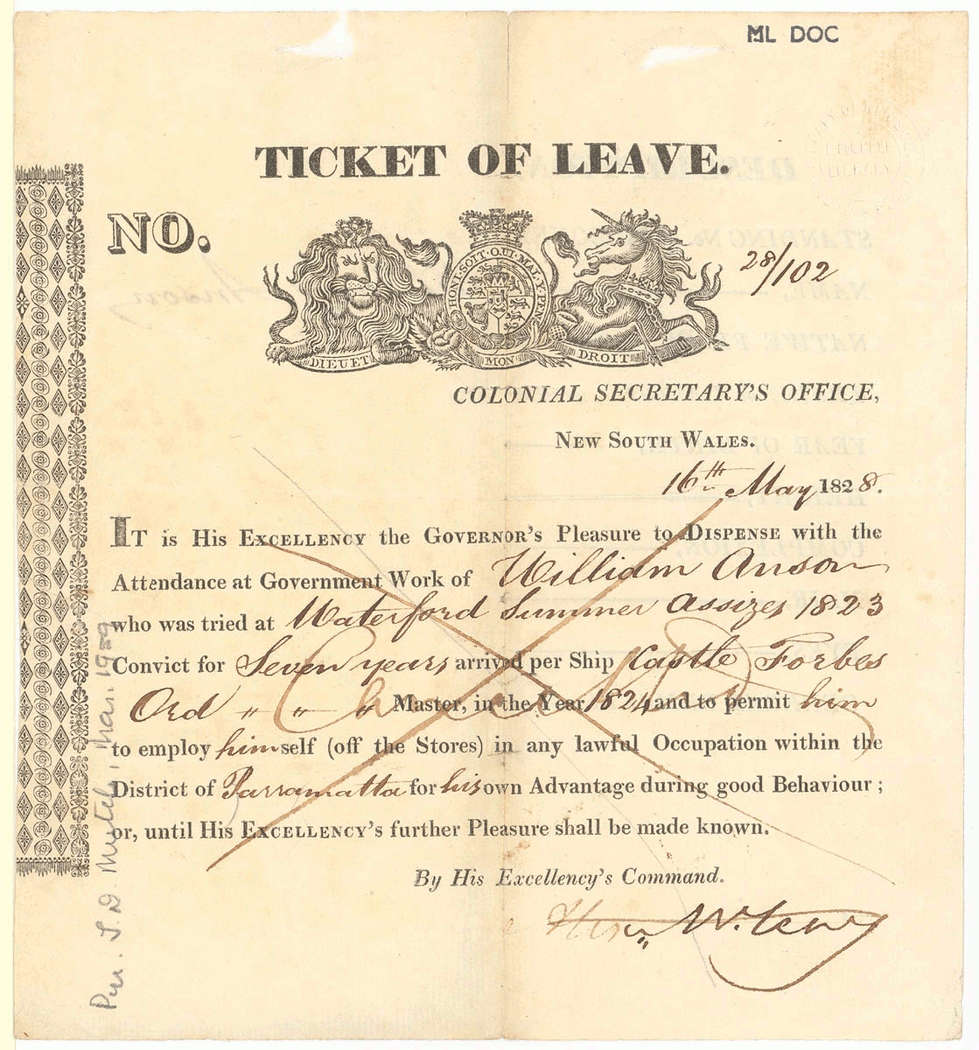 ML DOC
TICKET OF LEAVE.
NO.
28/102
HONI·SOIT·QUI·MAL·Y·PEN
DIEU ET MON DROIT
COLONIAL SECRETARY'S OFFICE,
NEW SOUTH WALES.
16th May 1828.
IT is His EXCELLENCY the GOVERNOR'S Pleasure to DISPENSE with the
Attendance at Government Work of William Anson
who was tried at Waterford Summer Assizes 1823
Convict for Seven years arrived per Ship Castle Forbes
Ord " " " Master, in the Year 1824 and to permit him
to employ himself (off the Stores) in any lawful Occupation within the
District of Parramatta for his own Advantage during good Behaviour;
or, until His EXCELLENCY'S further Pleasure shall be made known.
Cancelled
By His Excellency's Command.
Pur. T. D. Mutch, Mar. 1929